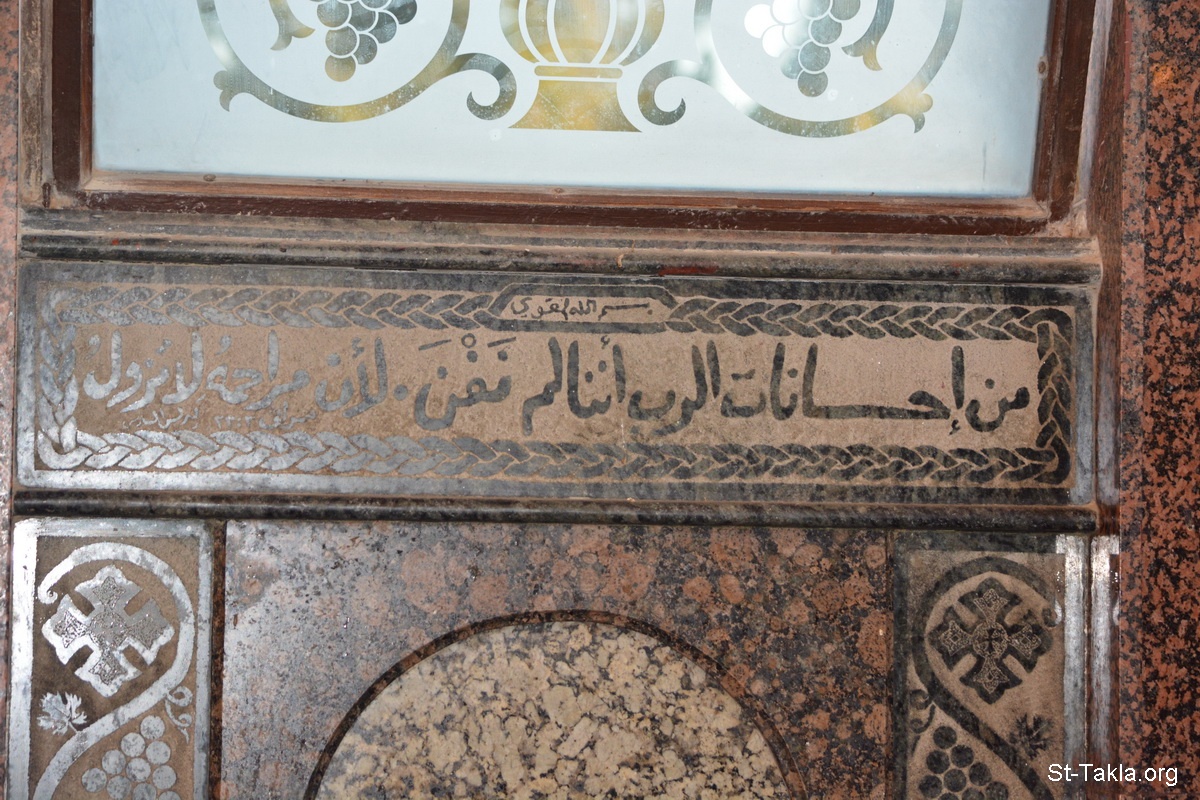 بسم الله القوي
من إحسانات الرب أننا لم نَفْنَ . لأن مراحمهُ لا تزولُ
مراثي ٣: ٢٢
St-Takla.org